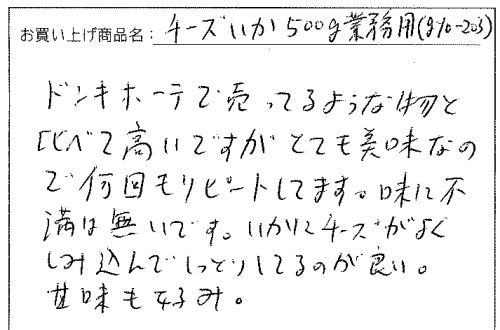 お買い上げ商品名：チーズいか500g業務用(g10-203)
ドンキホーテで売ってるような物と
比べて高いですがとても美味なの
で何回もリピートしてます。味に不
満は無いです。いかにチーズがよく
しみ込んでしっとりしてるのが良い。
甘味も好み。